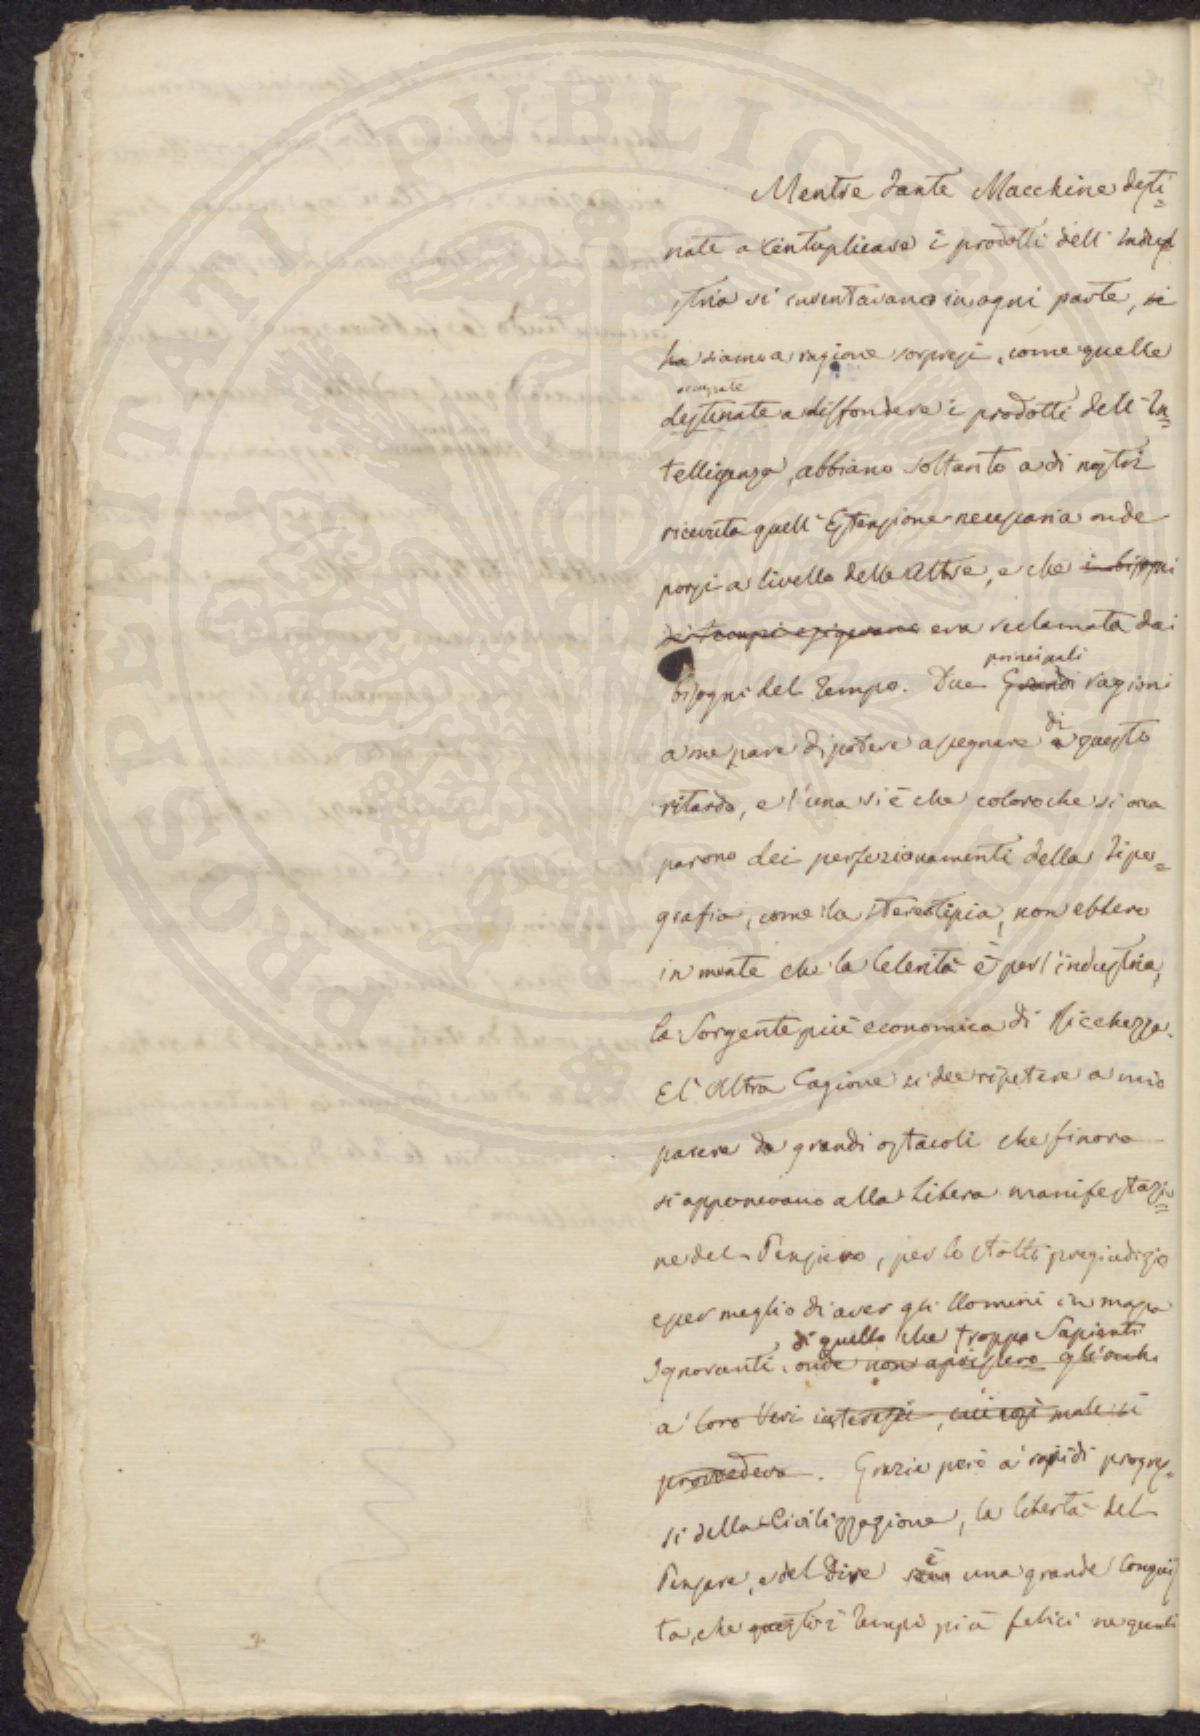 Mentre tante Macchine desti=
nate a centuplicare i prodotti dell' Indus
stria si inventavano in ogni parte, si
ha siamo a ragione sorpresi, come quelle
occupate
destinate a diffondere i prodotti dell' In=
telligenza, abbiano soltanto a dì nostri
ricevuta quell' Estensione necessaria onde
porsi a livello delle Altre, e che i bisogni
de' tempi esigevano era reclamata dai
bisogni del Tempo. Due Grandi ragioni
principali
a me pare di potere assegnare a questo
di
ritardo, e l'una si è che coloro che si occu
parono dei perfezionamenti della Tipo=
grafia, come la Stereotipia, non ebbero
in mente che la Celerità è per l'industria,
la Sorgente più economica di Ricchezza.
E l' Altra Cagione si dee ripetere a mio
parere da grandi ostacoli che finora
si opponevano alla Libera manifestazio=
ne del Pensiero, per lo stolto pregiudizio
esser meglio di aver gli Uomini in massa
di quello che troppo Sapienti
Ignoranti, onde non aprissero gli occhi
a' loro Veri interessi, cui così male si
provvedeva. Grazie però a' rapidi progres=
si della Civilizzazione, la libertà del
Pensare, e del Dire è una grande Conquis
ta, che questi i Tempi più felici ne quali
PROSPERITATI PUBLICAE